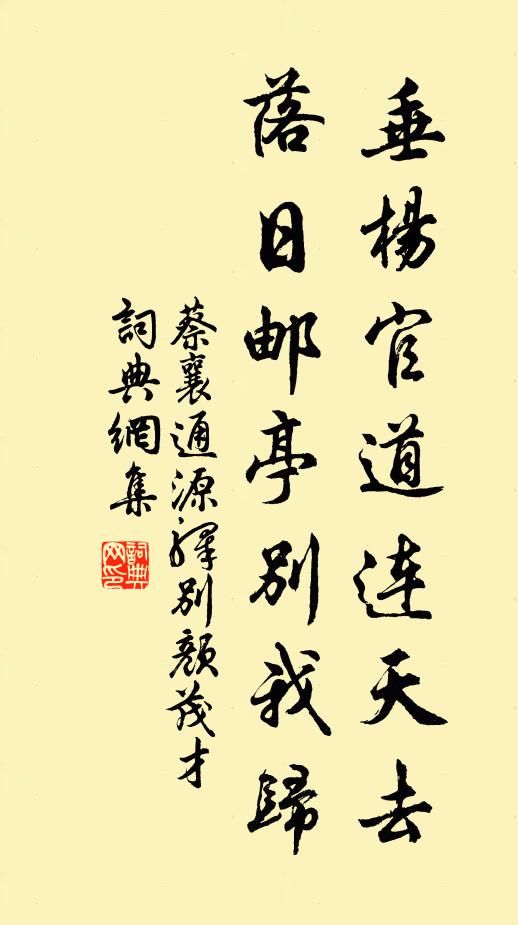 垂楊官道連天去
落日邮亭別我歸
蔡襄通源驛別顏茂才
詞典網集
詞典网印